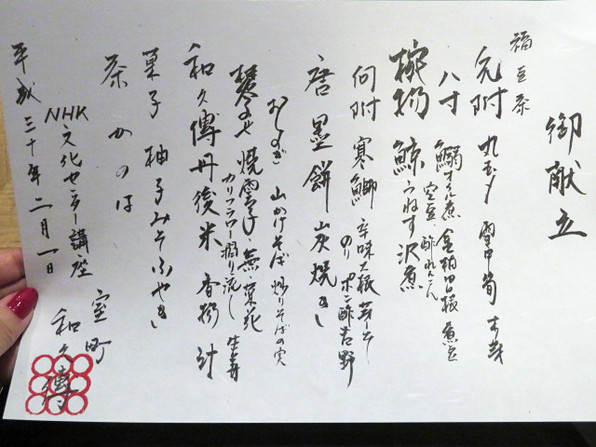 御献立
福豆茶
先附 丸大根 雪中筍 すり流
八寸 鰯すだち煮 金柑 田楽 煮豆
空豆 酢れんこん
椀物 鯨うねす 沢煮
向附 寒鰤 辛味大根 芽ねぎ
のり ポン酢吉野
唐墨餅 炭焼き
おしのぎ 山かけそば 炒りそばの実
焚合せ 焼雲子 蕪 菜花 生姜
カリフラワー摺り流し
和久傳丹後米 香物 汁
菓子 柚子みそふやき
茶 かのほ
NHK文化センター講座
平成三十年二月一日
室町
和久傳